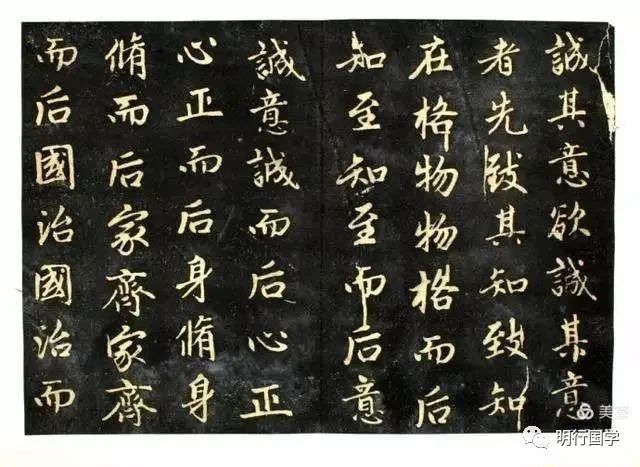 誠其意欲誠其意
者先致其知致知
在格物物格而后
知至知至而后意
誠意誠而后心正
心正而后身脩身
脩而后家齊家齊
而后國治國治而
美篇
明行国学